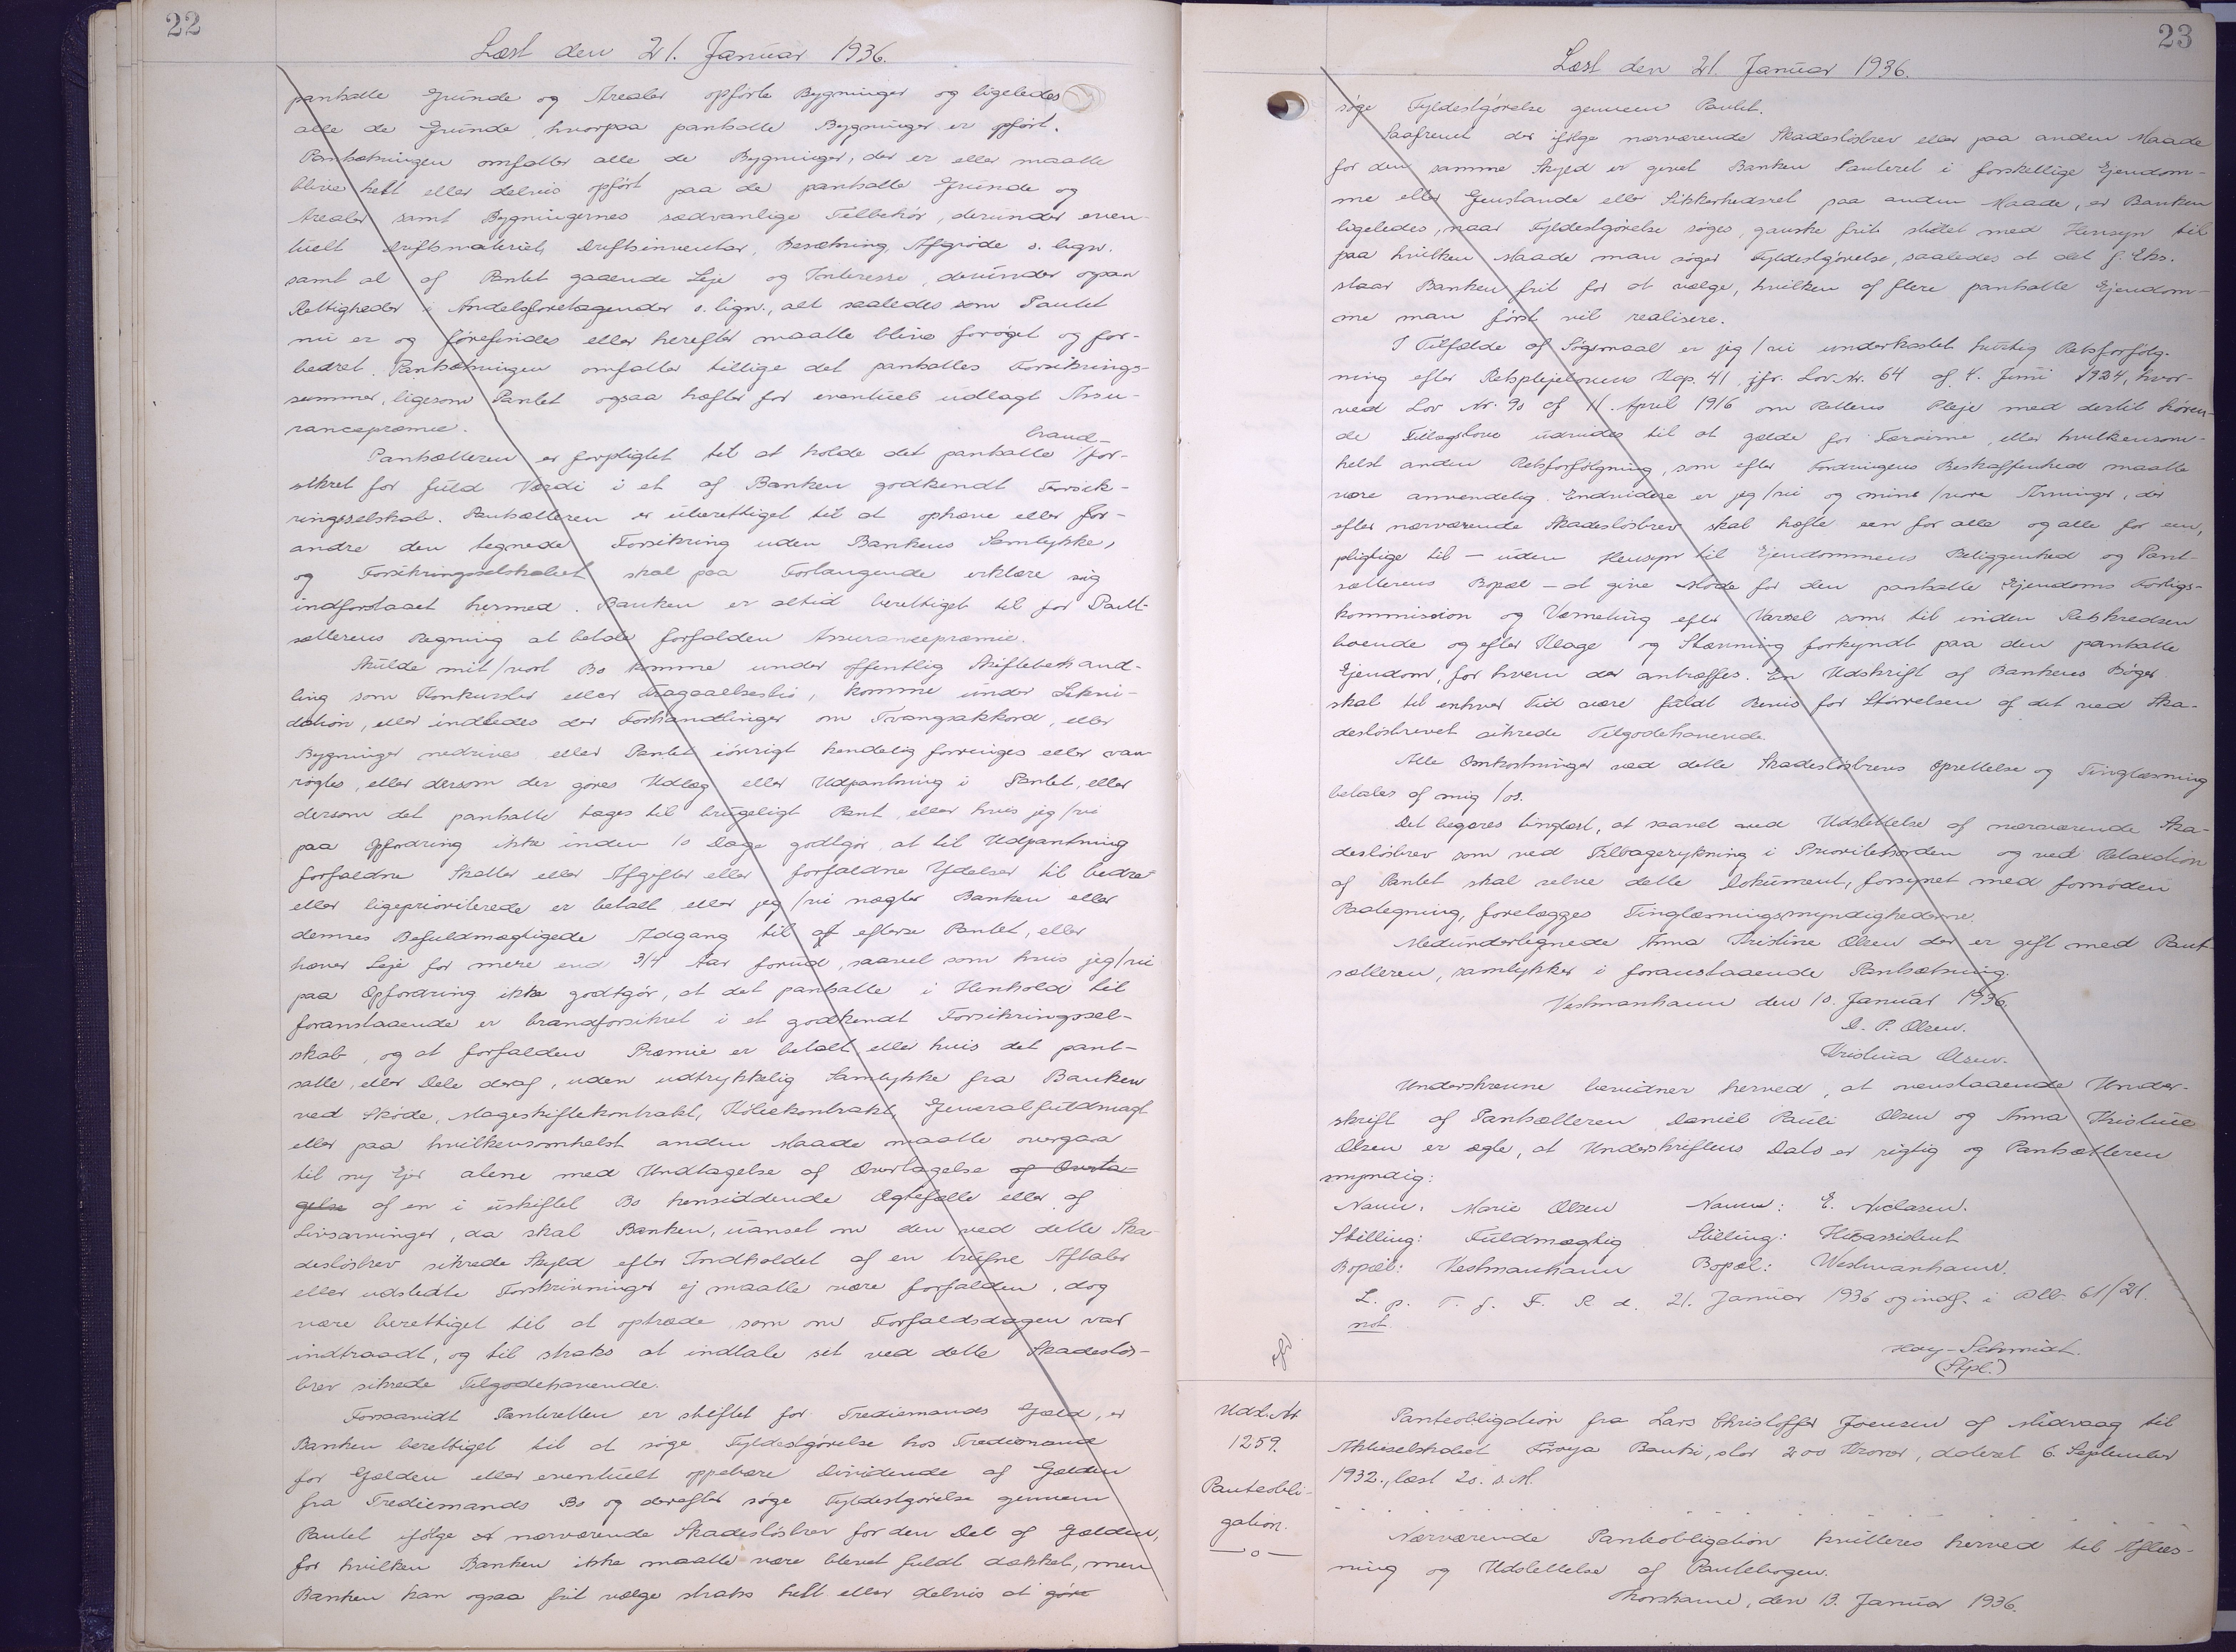 22
Læst den 21. Januar 1936.
pantsatte Grunde og Arealer opførte Bygninger og ligeledes
alle de Grunde, hvorpaa pantsatte Bygninger er opført.
Pantsætningen omfatter alle de Bygninger, der er eller maatte
blive helt eller delvis opført paa de pantsatte Grunde og
Arealer samt Bygningernes sædvanlige Tilbehør, derunder even-
tuelt Driftsmateriel, Driftsinventar, Besætning, Afgrøde o. lign.
samt al af Pantet gaaende Leje og Interesse, derunder ogsaa
Rettigheder i Andelsforetagender o. lign., alt saaledes som Pantet
nu er og forefindes eller herefter maatte blive forøget og for-
bedret. Pantsætningen omfatter tillige det pantsattes Forsikrings-
summer, ligesom Pantet ogsaa hæfter for eventuel udlagt Assu-
rancepræmie.
Pantsætteren er forpligtet til at holde det pantsatte brand-/for-
sikret for fuld Værdi i et af Banken godkendt Forsik-
ringsselskab. Pantsætteren er uberettiget til at ophæve eller for-
andre den tegnede Forsikring uden Bankens Samtykke,
og Forsikringsselskabet skal paa Forlangende erklære sig
indforstaaet hermed. Banken er altid berettiget til for Pant-
sætterens Regning at betale forfalden Assurancepræmie.
Skulde mit/vort Bo komme under offentlig Skiftebehand-
ling som Konkursbo eller Fragaaelsesbo, komme under Likvi-
dation, eller indledes der Forhandlinger om Tvangsakkord, eller
Bygninger nedrives, eller Pantet iøvrigt kendelig forringes eller van-
røgtes, eller dersom der gøres Udlæg eller Udpantning i Pantet, eller
dersom det pantsatte tages til brugeligt Pant, eller hvis jeg/vi
paa Opfordring ikke inden 10 Dage godtgør, at til Udpantning
forfaldne Skatter eller Afgifter eller forfaldne Ydelser til bedre-
eller ligeprioriterede er betalt eller jeg/vi nægter Banken eller
dennes Befuldmægtigede Adgang til at efterse Pantet, eller
hæver Leje for mere end 3/4 Aar forud, saavel som hvis jeg/vi
paa Opfordring ikke godtgør, at det pantsatte i Henhold til
foranstaaende er brandforsikret i et godkendt Forsikringssel-
skab, og at forfalden Præmie er betalt eller hvis det pant-
satte, eller Dele deraf, uden udtrykkelig Samtykke fra Banken
ved Skøde, Mageskiftekontrakt, Købekontrakt, Generalfuldmagt
eller paa hvilkensomhelst anden Maade maatte overgaa
til ny Ejer alene med Undtagelse af Overtagelse af Overta-
gelse af en i uskiftet Bo hensiddende Ægtefælle eller af
Livsarvinger, da skal Banken, uanset om den ved dette Ska-
desløsbrev sikrede Skyld efter Indholdet af en trufne Aftaler
eller udstedte Forskrivninger ej maatte være forfalden, dog
være berettiget til at optræde, som om Forfaldsdagen var
indtraadt, og til straks at indtale set ved dette Skadesløs-
brev sikrede Tilgodehavende.
Forsaavidt Panteretten er stiftet for Trediemands Gæld, er
Banken berettiget til at søge Fyldestgørelse hos Trediemand
for Gælden eller eventuelt oppebære Dividende af Gælden
fra Trediemands Bo og derefter søge Fyldestgørelse gennem
Pantet ifølge nærværende Skadesløsbrev for den Del af Gælden,
for hvilken Banken ikke maatte være blevet fuldt dækket, men
Banken kan ogsaa frit vælge straks helt eller delvis at gøre
23
Læst den 21. Januar 1936.
søge Fyldestgørelse gennem Pantet.
Saafremt der ifølge nærværende Skadesløsbrev eller paa anden Maade
for den samme Skyld er givet Banken Panteret i forskellige Ejendom-
me eller Genstande eller Sikkerhedsret paa anden Maade, er Banken
ligeledes, naar Fyldestgørelse søges, ganske frit stillet med Hensyn til
paa hvilken Maade man søger Fyldestgørelse, saaledes at det f. Eks.
staar Banken frit for at vælge, hvilken af flere pantsatte Ejendom-
me man først vil realisere.
I Tilfælde af Søgsmaal er jeg/vi underkastet hurtig Retsforfølg-
ning efter Retsplejelovens Kap. 41, jfr. Lov Nr. 64 af 4. Juni 1924, hvor-
ved Lov Nr. 90 af 11. April 1916 om Rettens Pleje med dertil høren-
de Tillægslove udvides til at gælde for Færøerne, eller hvilkensom-
helst anden Retsforfølgning, som efter Fordringens Beskaffenhed maatte
være anvendelig. Endvidere er jeg/vi og mine/vore Arvinger, der
efter nærværende Skadesløsbrev skal hæfte een for alle og alle for een,
pligtige til – uden Hensyn til Ejendommens Beliggenhed og Pant-
sætterens Bopæl – at give Møde for den pantsatte Ejendoms Forligs-
kommission og Værneting efter Varsel som til inden Retskredsen
boende og efter Klage og Stævning forkyndt paa den pantsatte
Ejendom, for hvem der antræffes. En Udskrift af Bankens Bøger
skal til enhver Tid være fuldt Bevis for Størrelsen af det ved Ska-
desløsbrevet sikrede Tilgodehavende.
Alle Omkostninger ved dette Skadesløsbrevs Oprettelse og Tinglæsning
betales af mig/os.
Det begæres tinglæst, at saavel ved Udslettelse af nærværende Ska-
desløsbrev som ved Tilbagerykning i Prioritetsorden og ved Relaxation
af Pantet skal selve dette Dokument, forsynet med fornøden
Paategning, forelægges Tinglæsningsmyndighederne.
Medundertegnede Anna Kristine Olsen der er gift med Pant-
sætteren, samtykker i foranstaaende Pantsætning.
Vestmanhavn den 10. Januar 1936.
D. P. Olsen.
Kristina Olsen.
Underskrevne bevidner herved, at ovenstaaende Under-
skrift af Pantsætteren Daniel Pauli Olsen og Anna Kristine
Olsen er ægte, at Underskriftens Dato er rigtig og Pantsætteren
myndig:
Navn: Marie Olsen Navn: E. Niclasen.
Stilling: Fuldmægtig Stilling:
Bopæl: Vestmanhavn Bopæl: Westmanhavn.
L. p. T. f. F. R. d. 21. Januar 1936 og indf. i Dbb. 61/21.
not.
Kay-Schmidt.
(Stpl.)
Udsl. Nr
1259.
Panteobli-
gation.
—o—
Panteobligation fra Lars Christoffer Joensen af Midvaag til
Aktieselskabet Føroya Banki, stor 200 Kroner, dateret 6. September
1932., læst 20. s. M.
Nærværende Panteobligation kvitteres herved til Aflæs-
ning og Udslettelse af Pantebogen.
Thorshavn, den 13. Januar 1936.